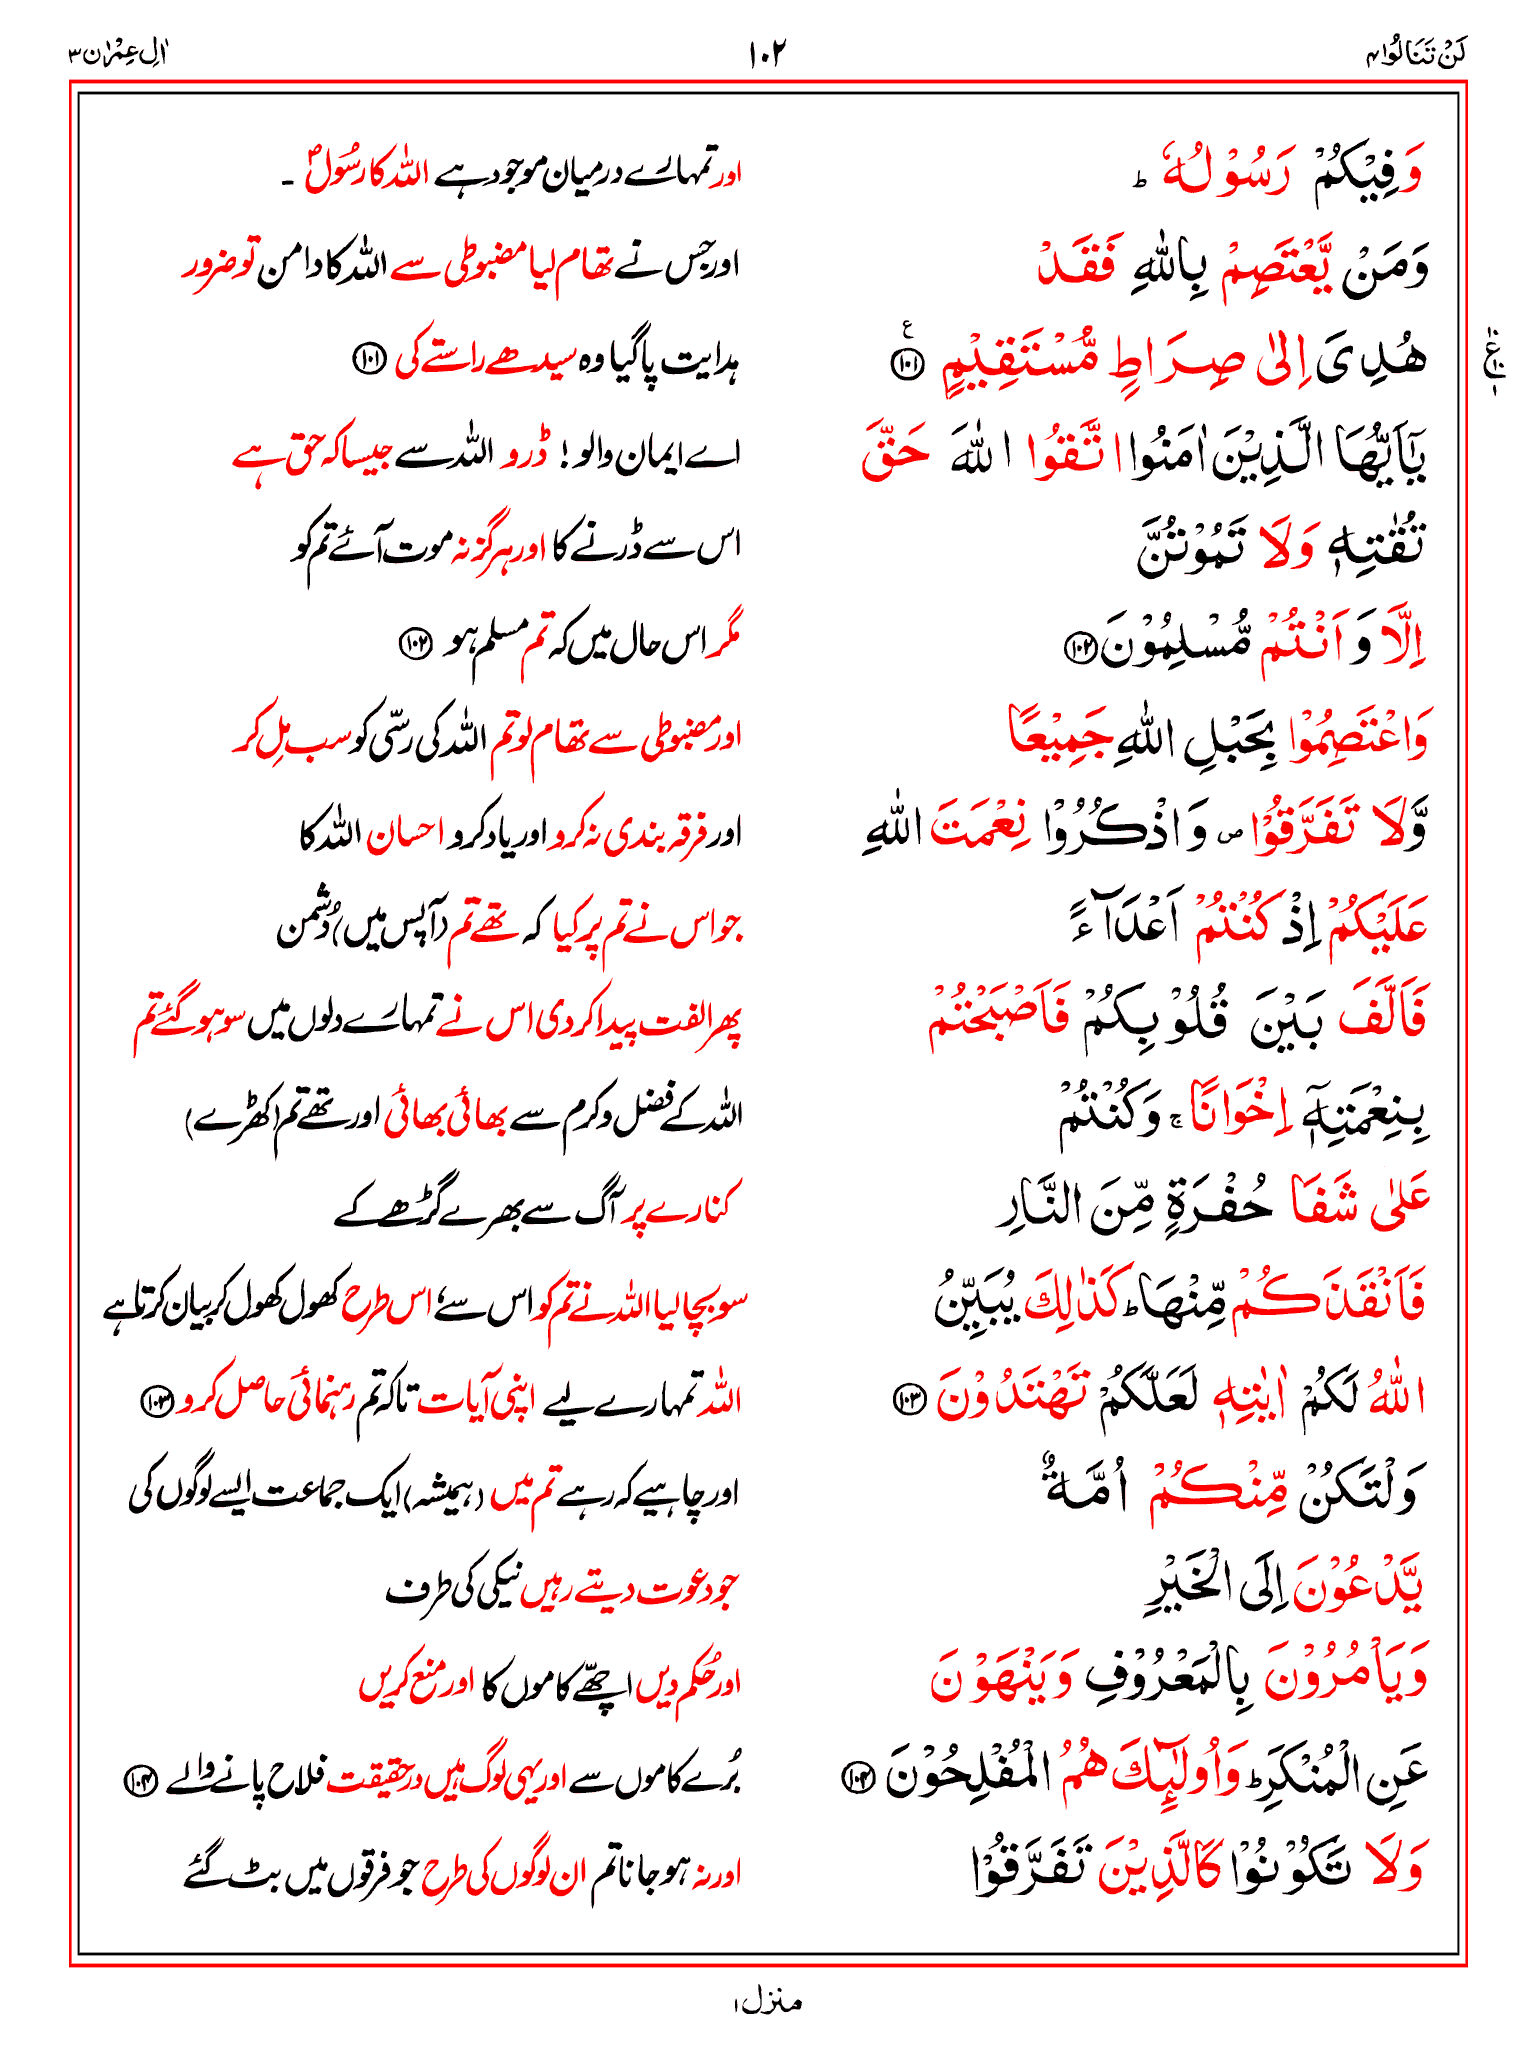 لَنْ تَنَالُوا ۴ ۱۰۲ اٰلِ عِمْرٰن ۳
وَفِيْكُمْ رَسُوْلُهٗ ؕ اور تمہارے درمیان موجود ہے اللہ کا رسُولؐ ۔
وَمَنْ يَّعْتَصِمْ بِاللّٰهِ فَقَدْ اور جس نے تھام لیا مضبوطی سے اللہ کا دامن تو ضرور
هُدِىَ اِلٰى صِرَاطٍ مُّسْتَقِيْمٍ ۱۰۱ ع ہدایت پا گیا وہ سیدھے راستے کی ۱۰۱
يٰۤاَيُّهَا الَّذِيْنَ اٰمَنُوا اتَّقُوا اللّٰهَ حَقَّ اے ایمان والو! ڈرو اللہ سے جیسا کہ حق ہے
تُقٰتِهٖ وَلَا تَمُوْتُنَّ اس سے ڈرنے کا اور ہرگز نہ موت آئے تم کو
اِلَّا وَاَنْتُمْ مُّسْلِمُوْنَ ۱۰۲ مگر اس حال میں کہ تم مسلم ہو ۱۰۲
وَاعْتَصِمُوْا بِحَبْلِ اللّٰهِ جَمِيْعًا اور مضبوطی سے تھام لو تم اللہ کی رسّی کو سب مِل کر
وَّلَا تَفَرَّقُوْا ص وَاذْكُرُوْا نِعْمَتَ اللّٰهِ اور فرقہ بندی نہ کرو اور یاد کرو احسان اللہ کا
عَلَيْكُمْ اِذْ كُنْتُمْ اَعْدَآءً جو اس نے تم پر کیا کہ تھے تم (آپس میں) دُشمن
فَاَلَّفَ بَيْنَ قُلُوْبِكُمْ فَاَصْبَحْتُمْ پھر الفت پیدا کردی اس نے تمہارے دلوں میں سو ہو گئے تم
بِنِعْمَتِهٖۤ اِخْوَانًا ۚ وَكُنْتُمْ اللہ کے فضل و کرم سے بھائی بھائی اور تھے تم (کھڑے)
عَلٰى شَفَا حُفْرَةٍ مِّنَ النَّارِ کنارے پر آگ سے بھرے گڑھے کے
فَاَنْقَذَكُمْ مِّنْهَا ؕ كَذٰلِكَ يُبَيِّنُ سو بچا لیا اللہ نے تم کو اس سے، اس طرح کھول کھول کر بیان کرتا ہے
اللّٰهُ لَكُمْ اٰيٰتِهٖ لَعَلَّكُمْ تَهْتَدُوْنَ ۱۰۳ اللہ تمہارے لیے اپنی آیات تاکہ تم رہنمائی حاصل کرو ۱۰۳
وَلْتَكُنْ مِّنْكُمْ اُمَّةٌ اور چاہیے کہ رہے تم میں (ہمیشہ) ایک جماعت ایسے لوگوں کی
يَّدْعُوْنَ اِلَى الْخَيْرِ جو دعوت دیتے رہیں نیکی کی طرف
وَيَاْمُرُوْنَ بِالْمَعْرُوْفِ وَيَنْهَوْنَ اور حُکم دیں اچھّے کاموں کا اور منع کریں
عَنِ الْمُنْكَرِ ؕ وَاُولٰٓئِكَ هُمُ الْمُفْلِحُوْنَ ۱۰۴ بُرے کاموں سے اور یہی لوگ ہیں درحقیقت فلاح پانے والے ۱۰۴
وَلَا تَكُوْنُوْا كَالَّذِيْنَ تَفَرَّقُوْا اور نہ ہو جانا تم ان لوگوں کی طرح جو فرقوں میں بٹ گئے
منزل ۱